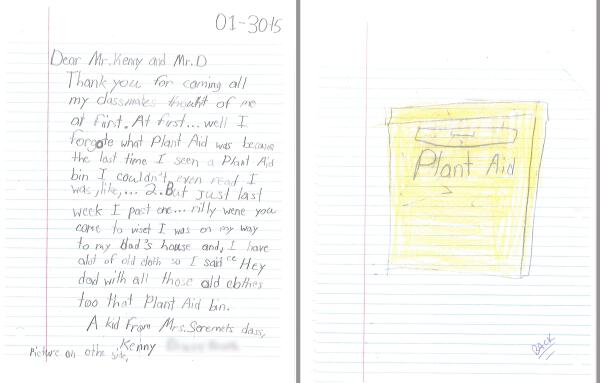 01-30-15
Dear Mr. Kenny and Mr. D
Thank you for coming all
my classmates thouht of me
at first. At first... well I
forgote what Plant Aid was because
the last time I seen a Plant Aid
bin I couldn't even read I
was, like,... 2. But just last
week I past one... rilly wene you
came to viset I was on my way
to my dad's house and, I have
alot of old cloth so I said "Hey
dad with all those old clothes
too that Plant Aid bin.
A kid from Mrs. Seremets class,
Kenny
Picture on othe side,
Plant Aid
BACK